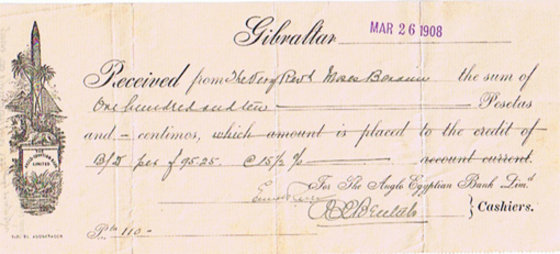 Gibraltar MAR 26 1908
Received from The Very Revd Moses Benaim the sum of
One hundred and ten Pesetas
and - centimos, which amount is placed to the credit of
B/D per £ 95.25. @ 15½ % account current.
For The Anglo Egyptian Bank Limd
Cashiers.
Pta 110 -
THE ANGLO-EGYPTIAN BANK LIMITED